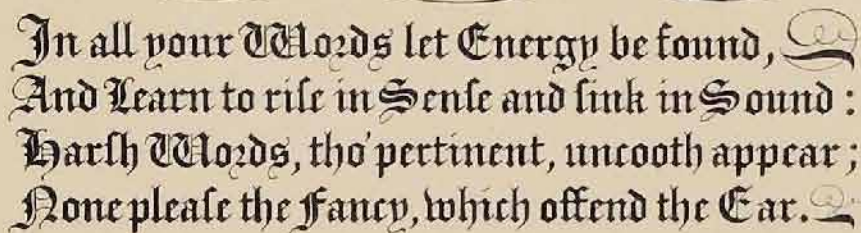 In all your Words let Energy be found,
And Learn to riſe in Senſe and ſink in Sound :
Harſh Words, tho' pertinent, uncooth appear ;
None pleaſe the Fancy, which offend the Ear.